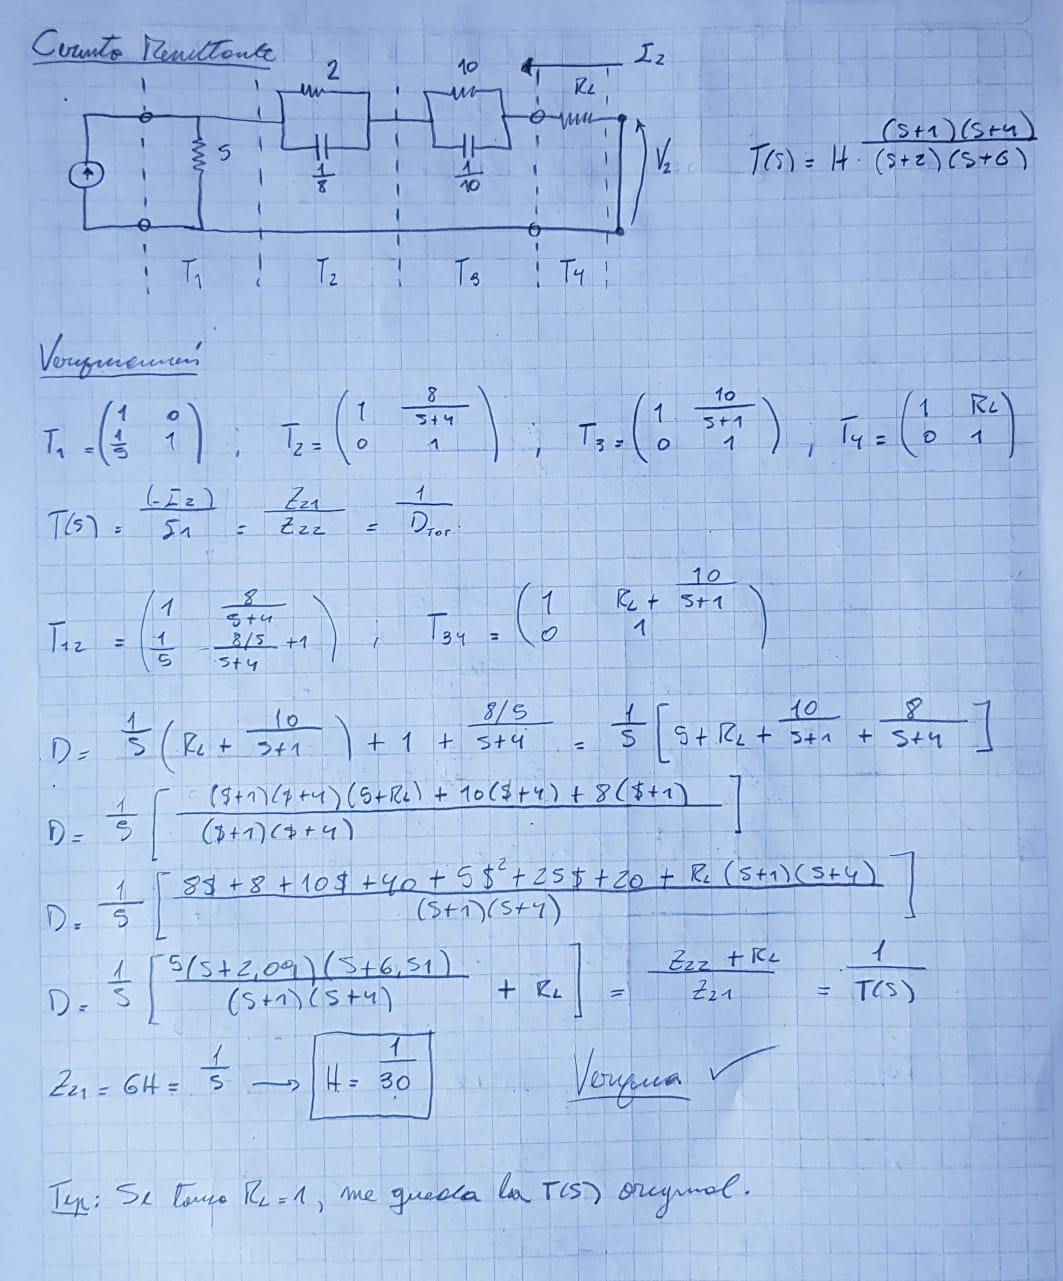 Circuito Resultante
2
10
I₂
RL
5
1/8
1/10
V₂
T(s) = H · (s+1)(s+4) / (s+2)(s+6)
T₁
T₂
T₃
T₄
Verificación
T₁ = (1 0; 1/5 1) ; T₂ = (1 8/(s+4); 0 1) ; T₃ = (1 10/(s+1); 0 1) ; T₄ = (1 RL; 0 1)
T(s) = (-I₂)/I₁ = Z₂₁/Z₂₂ = 1/D_TOT.
T₁₂ = (1 8/(s+4); 1/5 (8/5)/(s+4) +1) ; T₃₄ = (1 RL + 10/(s+1); 0 1)
D = 1/5 (RL + 10/(s+1)) + 1 + (8/5)/(s+4) = 1/5 [5 + RL + 10/(s+1) + 8/(s+4)]
D = 1/5 [((\$+1)(\$+4)(5+RL) + 10(\$+4) + 8(\$+1)) / (\$+1)(\$+4)]
D = 1/5 [(8\$ + 8 + 10\$ + 40 + 5\$² + 25\$ + 20 + RL (s+1)(s+4)) / (s+1)(s+4)]
D = 1/5 [5(s+2,09)(s+6,51) / (s+1)(s+4) + RL] = (Z₂₂ + RL)/Z₂₁ = 1/T(s)
Z₂₁ = 6H = 1/5 → H = 1/30
Verifica ✓
: Si tomo RL = 1, me queda la T(s) original.